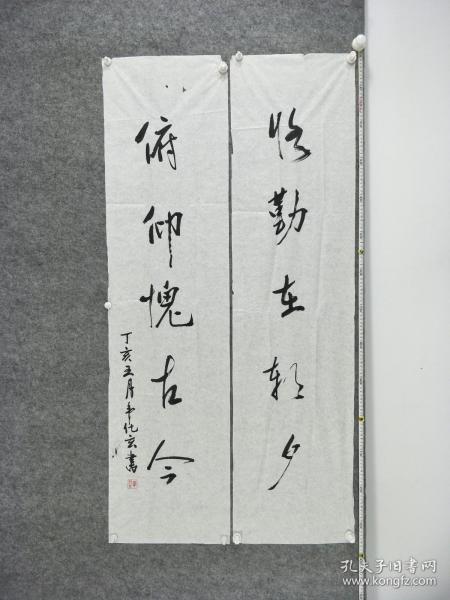 恪勤在朝夕
俯仰愧古今
丁亥五月
書
孔夫子旧书网
www.kongfz.com